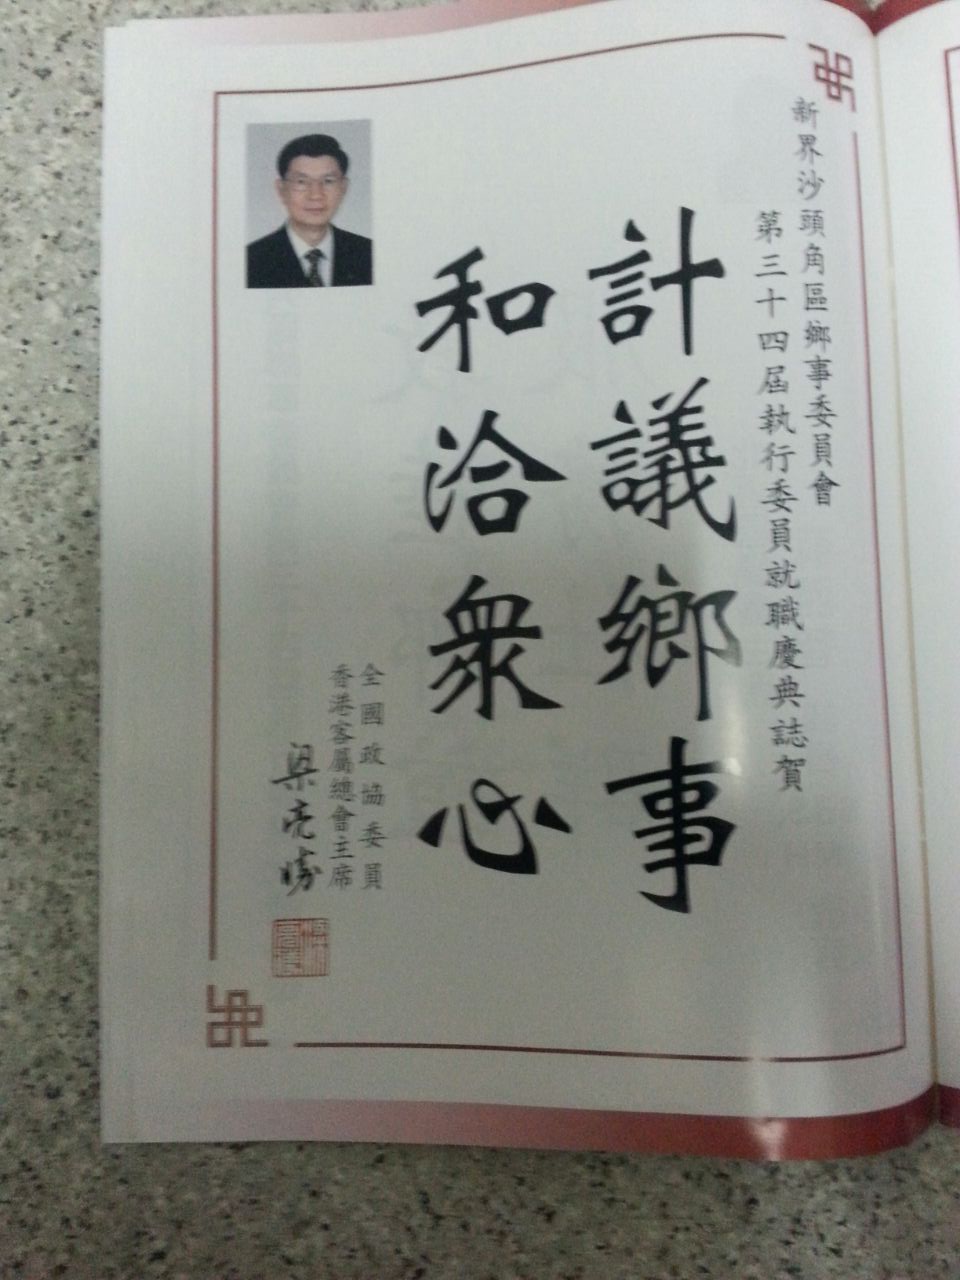 新界沙頭角區鄉事委員會
第三十四屆執行委員就職慶典誌賀
計議鄉事
和洽衆心
全國政協委員
香港客屬總會主席
梁亮勝